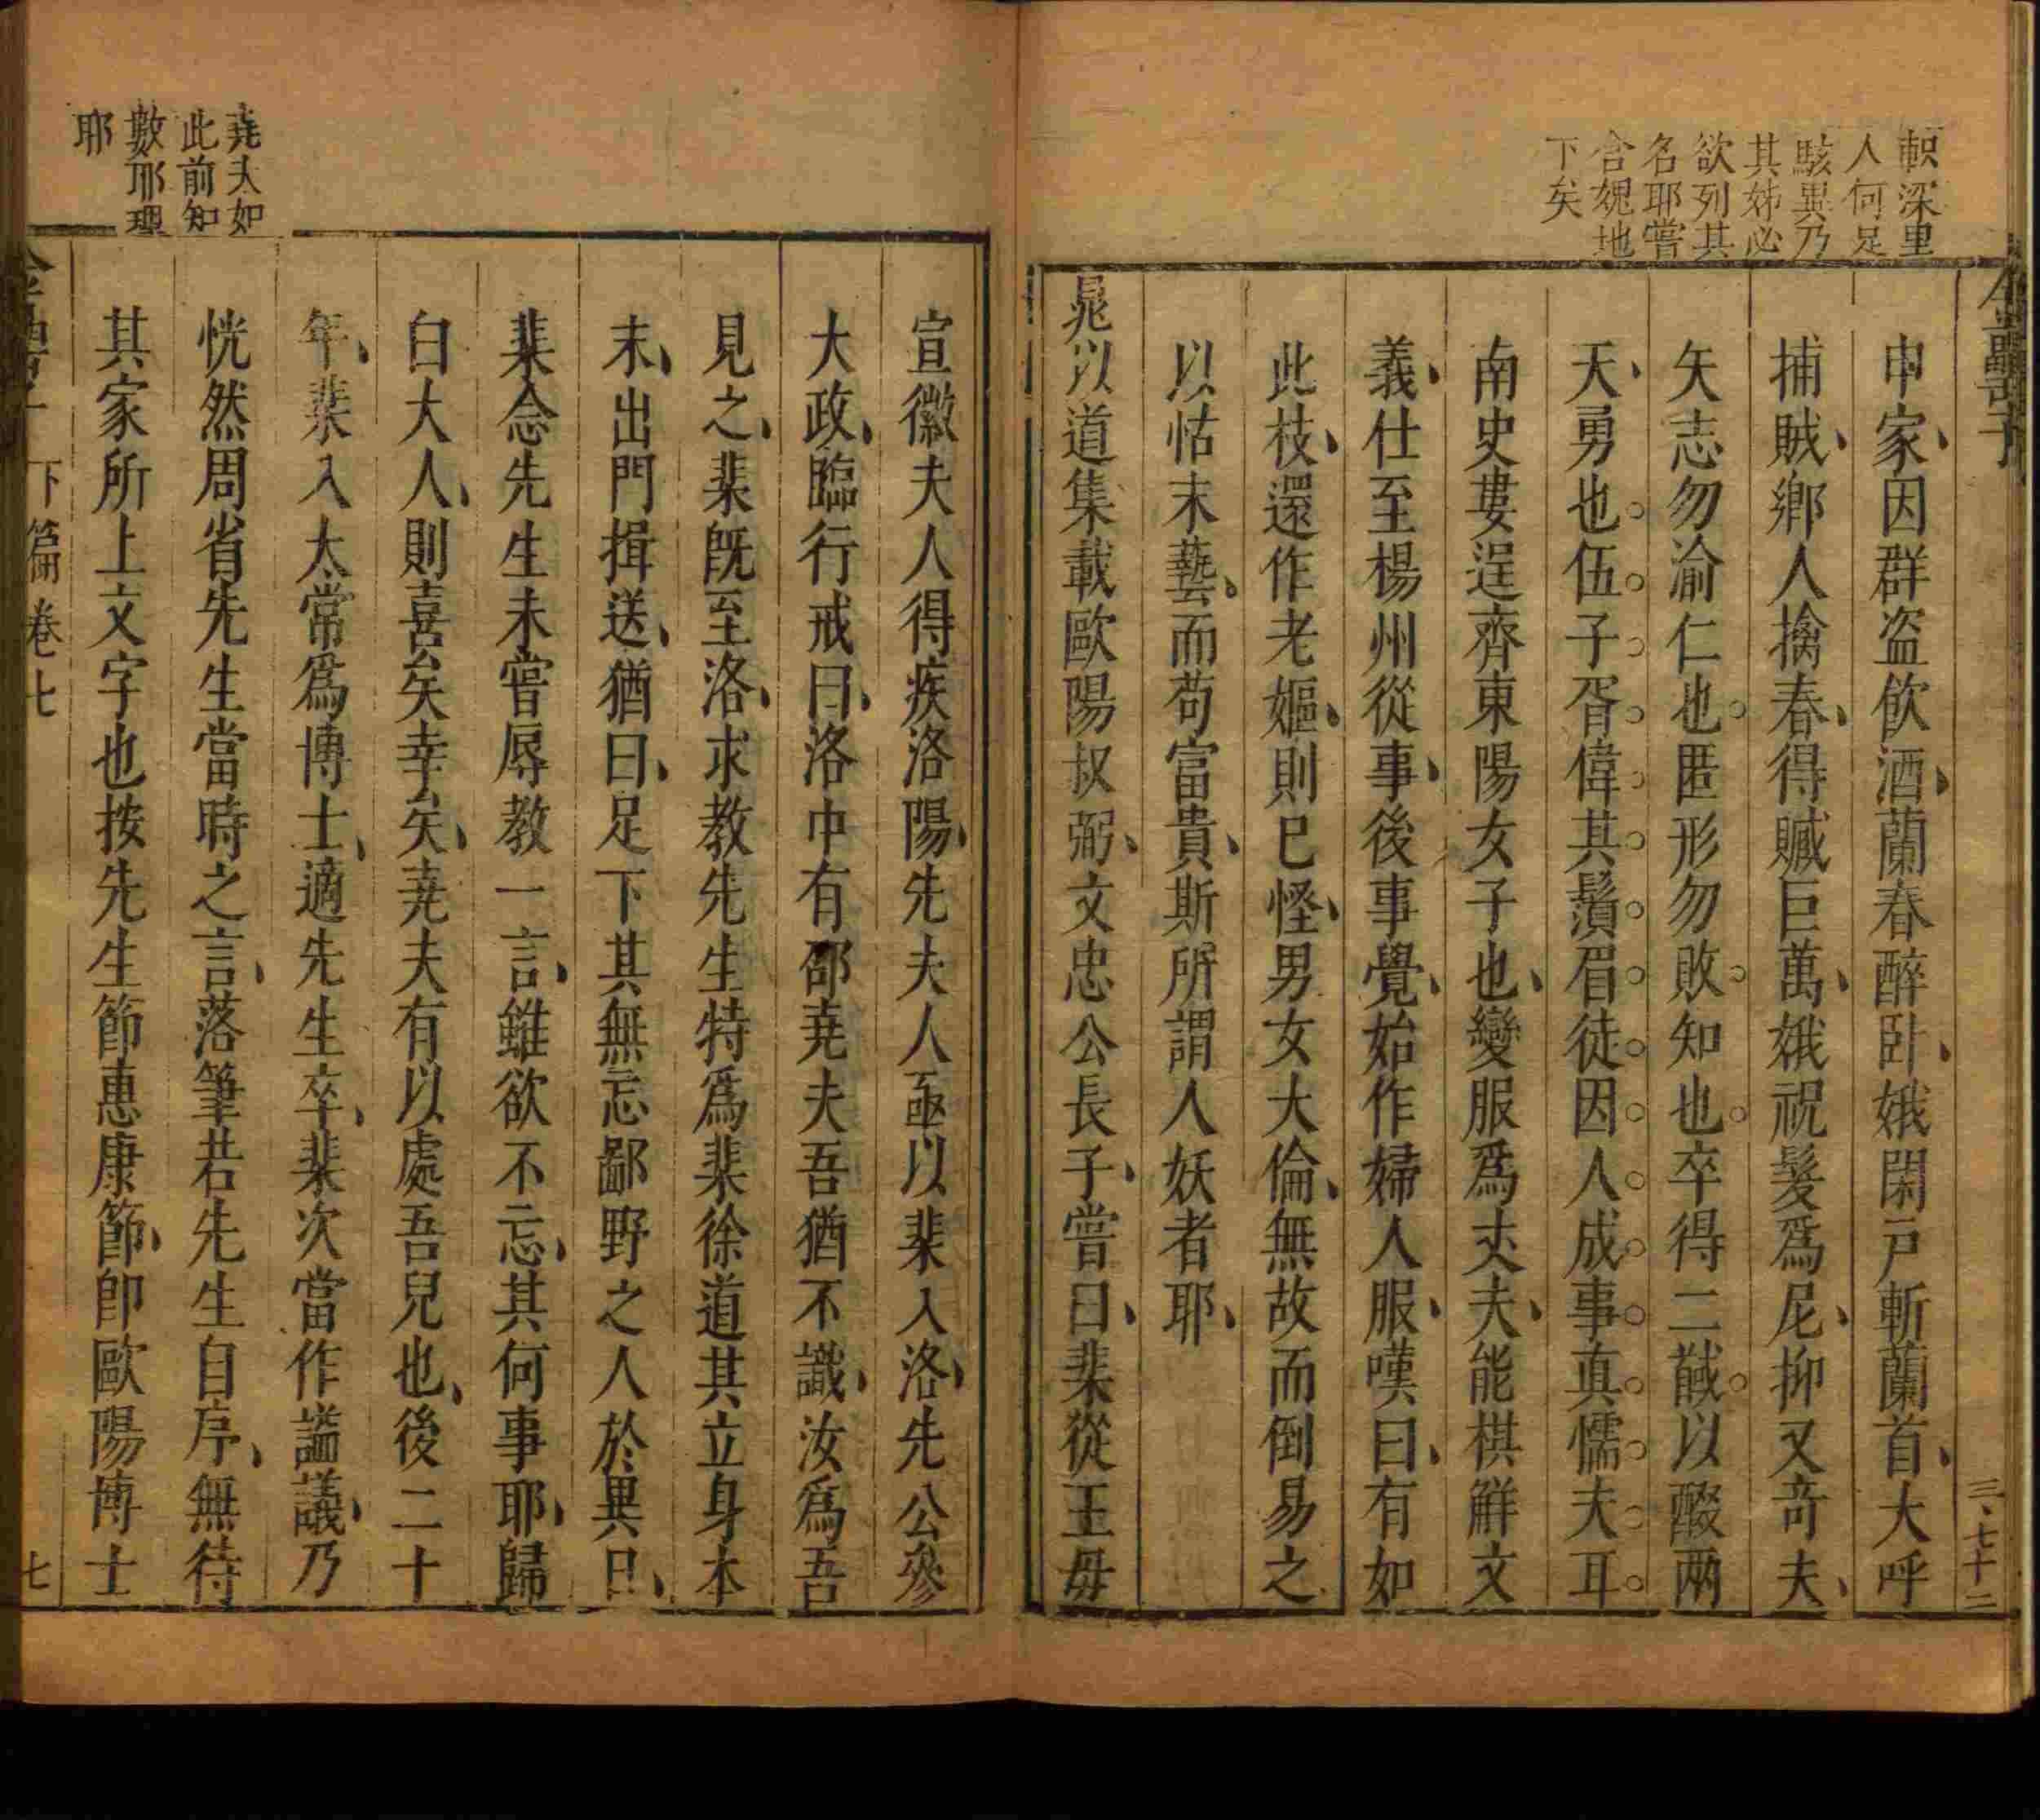 軹深里
人何足
駭異乃
其姊必
欲列其
名耶嘗
含媿地
下矣
申家因群盜飲酒蘭春醉臥娥閉戶斬蘭首大呼
捕賊鄉人擒春得贓巨萬娥祝髮爲尼抑又奇夫
矢志勿渝仁也匿形勿敗知也卒得二馘以醊兩
天勇也伍子胥偉其鬚眉徒因人成事真懦夫耳
南史婁逞齊東陽女子也變服爲丈夫能棋鮮文
義仕至楊州從事後事覺始作婦人服嘆曰有如
此枝還作老嫗則已怪男女大倫無故而倒易之
以怙末藝而苟富貴斯所謂人妖者耶
晁以道集載歐陽叔弼文忠公長子嘗曰棐從王毋
三、七十二
堯夫如
此前知
數耶理
耶
宣徽夫人得疾洛陽先夫人亟以棐入洛先公參
大政臨行戒曰洛中有邵堯夫吾猶不識汝爲吾
見之棐既至洛求教先生特爲棐徐道其立身本
末出門揖送猶曰足下其無忘鄙野之人於異日
棐念先生未嘗辱教一言雖欲不忘其何事耶歸
白大人則喜矣幸矣堯夫有以處吾兒也後二十
年棐入太常爲博士適先生卒棐次當作謚議乃
恍然周省先生當時之言落筆若先生自序無待
其家所上文字也按先生節惠康節卽歐陽博士
下篇 卷七
七